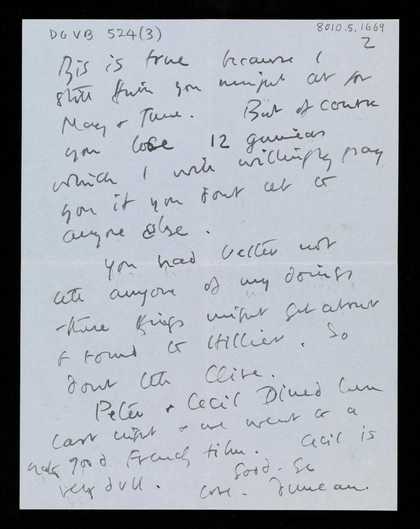 DGVB 524(3)
8010.5.1669
2
This is true because I
still think you might let for
May & June. But of course
you lose 12 guineas
which I will willingly pay
you if you dont let to
anyone else.
You had better not
tell anyone of my doings
these things might get about
& round to Hillier. So
dont tell Clive.
Peter & Cecil Dined here
last night & we went to a
good French film. Cecil is
very dull.
love. Duncan.